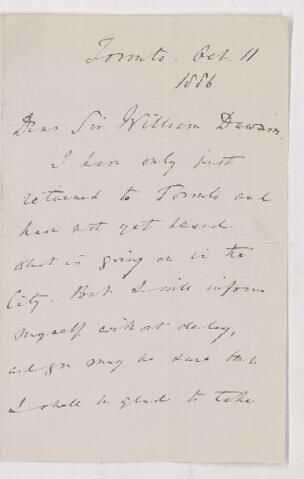 Toronto. Oct. 11
1886
Dear Sir William Dawson.
I have only just
returned to Toronto and
have not yet heard
what is going on in the
City. But I will inform
myself without delay,
and you may be sure that
I shall be glad to take